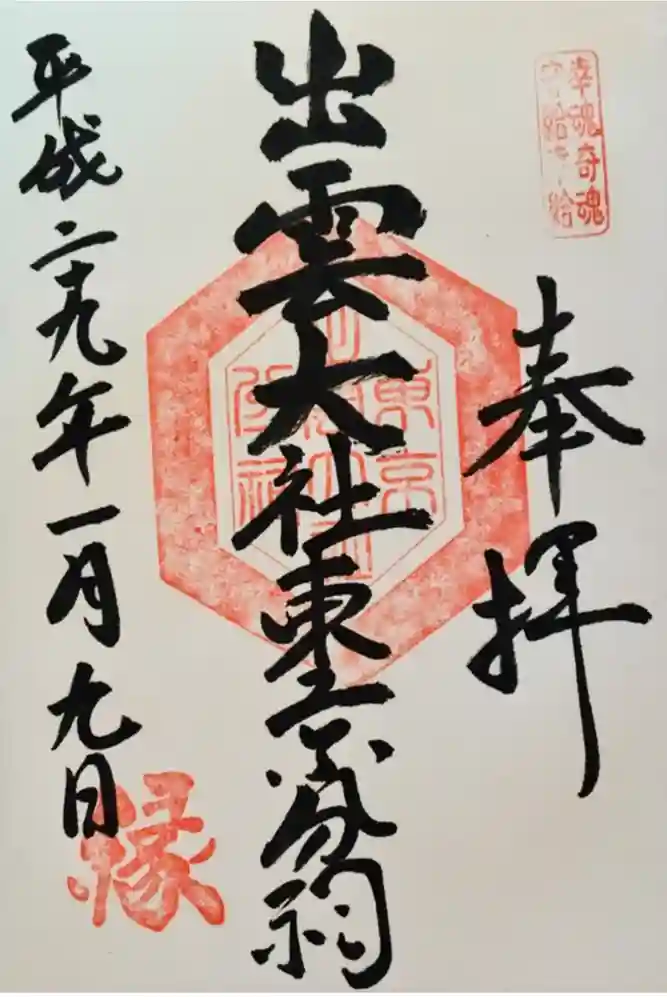 幸魂奇魂
守給幸給
奉拝
出雲大社東京分祠
東京
平成二十九年一月九日
縁